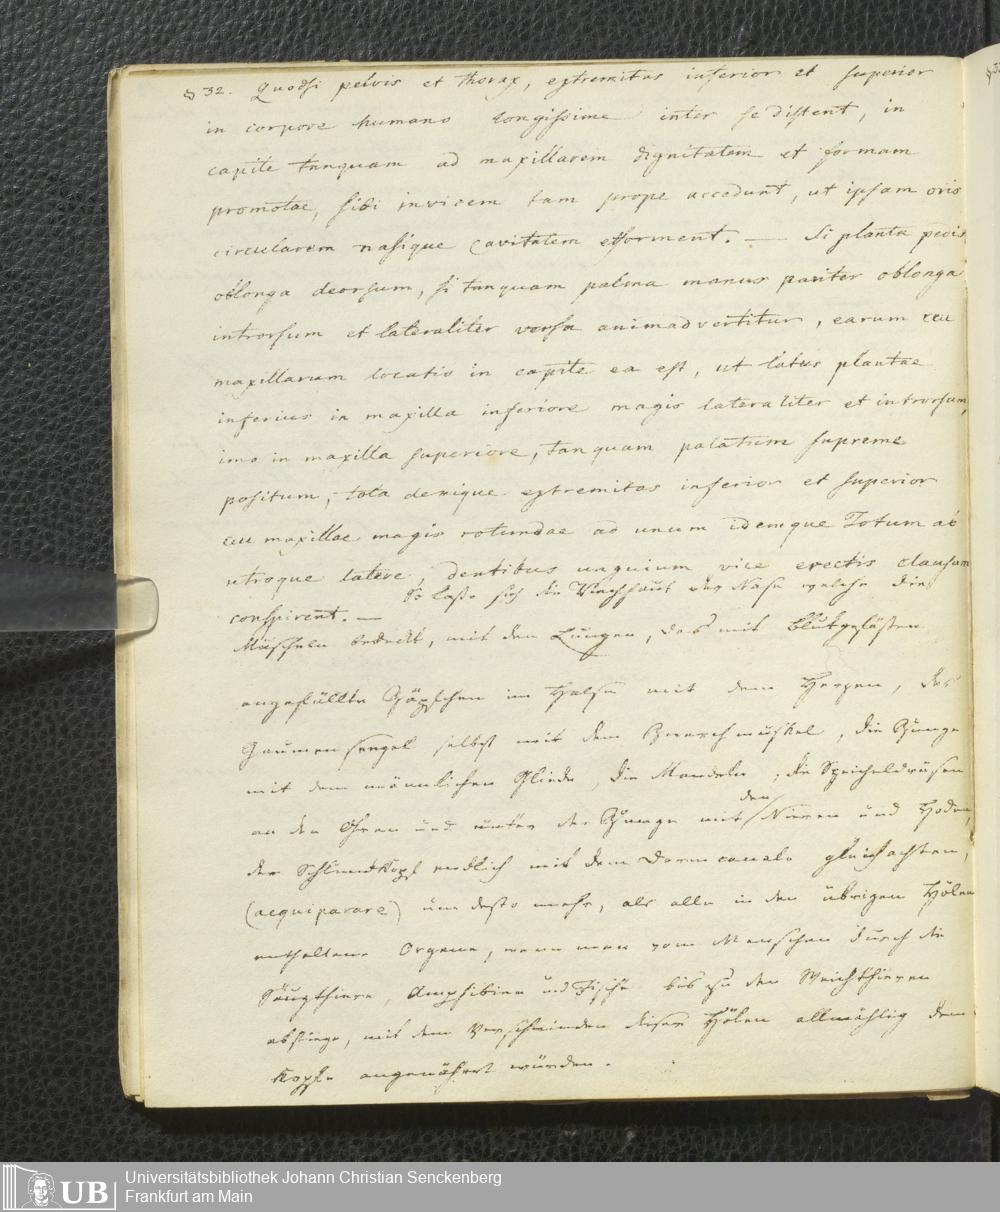 § 32. Quodsi pelvis et thorax, extremitas inferior et superior
in corpore humano longissime inter se distent, in
capite tanquam ad maxillarem dignitatem et formam
promotae, sibi invicem tam prope accedunt, ut ipsam oris
circularem nasique cavitatem efforment. — Si planta pedis
oblonga deorsum, si tanquam palma manus pariter oblonga
introrsum et lateraliter versa animadvertitur, earum ceu
maxillarum locatio in capite ea est, ut latus plantae
inferius in maxilla inferiore magis lateraliter et introrsum,
imo in maxilla superiore, tanquam palatum supreme
positum, tota denique extremitas inferior et superior
ceu maxillae magis rotundae ad unum idemque Totum ab
utroque latere, dentibus unguium vice erectis clausum
conspirent. —
So lasse sich die der Nase welche die
Muscheln bedeckt, mit den Lungen, das mit Blutgefässen
angefüllte Zäpfchen im Halse mit dem Herzen, das
Gaumensegel selbst mit dem Zwerchmuskel, die Zunge
mit dem männlichen Gliede, die Mandeln, die Speicheldrüsen
an den Ohren und unter der Zunge mit den Nieren und Hoden,
der Schlundkopf endlich mit dem Darmcanale gleichachten,
(aequiparare) um desto mehr, als alle in den übrigen Hölen
enthaltene Organe, wenn man vom Menschen durch die
Säugthiere, Amphibien und Fische bis zu den Weichthieren
absteige, mit dem Verschwinden dieser Hölen allmählig dem
Kopfe angenähert würden.
UB
Universitätsbibliothek Johann Christian Senckenberg
Frankfurt am Main